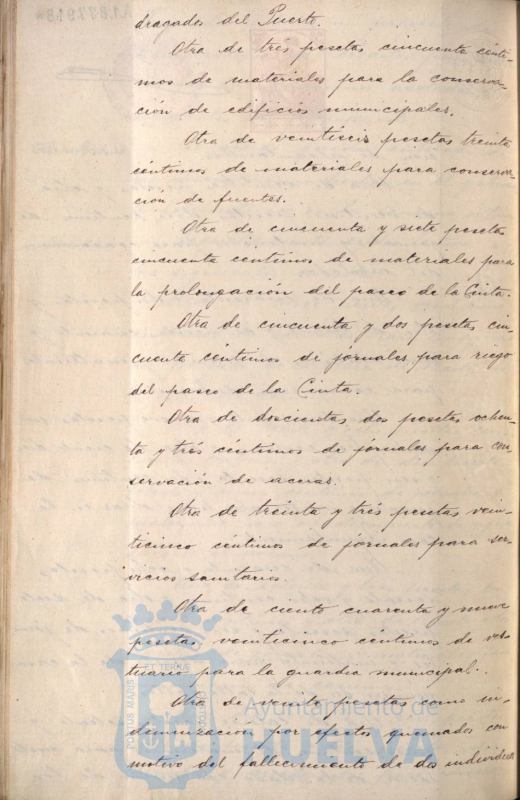 dragados del Puerto.
Otra de tres pesetas cincuenta cénti-
mos de materiales para la conserva-
ción de edificios municipales.
Otra de veintiseis pesetas treinta
céntimos de materiales para conserva-
ción de fuentes.
Otra de cincuenta y siete pesetas
cincuenta céntimos de materiales para
la prolongación del paseo de la Cinta.
Otra de cincuenta y dos pesetas cin-
cuenta céntimos de jornales para riego
del paseo de la Cinta.
Otra de doscientas dos pesetas ochen-
ta y tres céntimos de jornales para con-
servación de aceras.
Otra de treinta y tres pesetas vein-
ticinco céntimos de jornales para ser-
vicios sanitarios.
Otra de ciento cuarenta y nueve
pesetas veinticinco céntimos de ves-
tuario para la guardia municipal.
Otra de veinte pesetas como in-
demnización por efectos quemados con
motivo del fallecimiento de dos individuos
PORTUS MARIS ET TERRÆ CUSTODIA
Ayuntamiento de
HUELVA